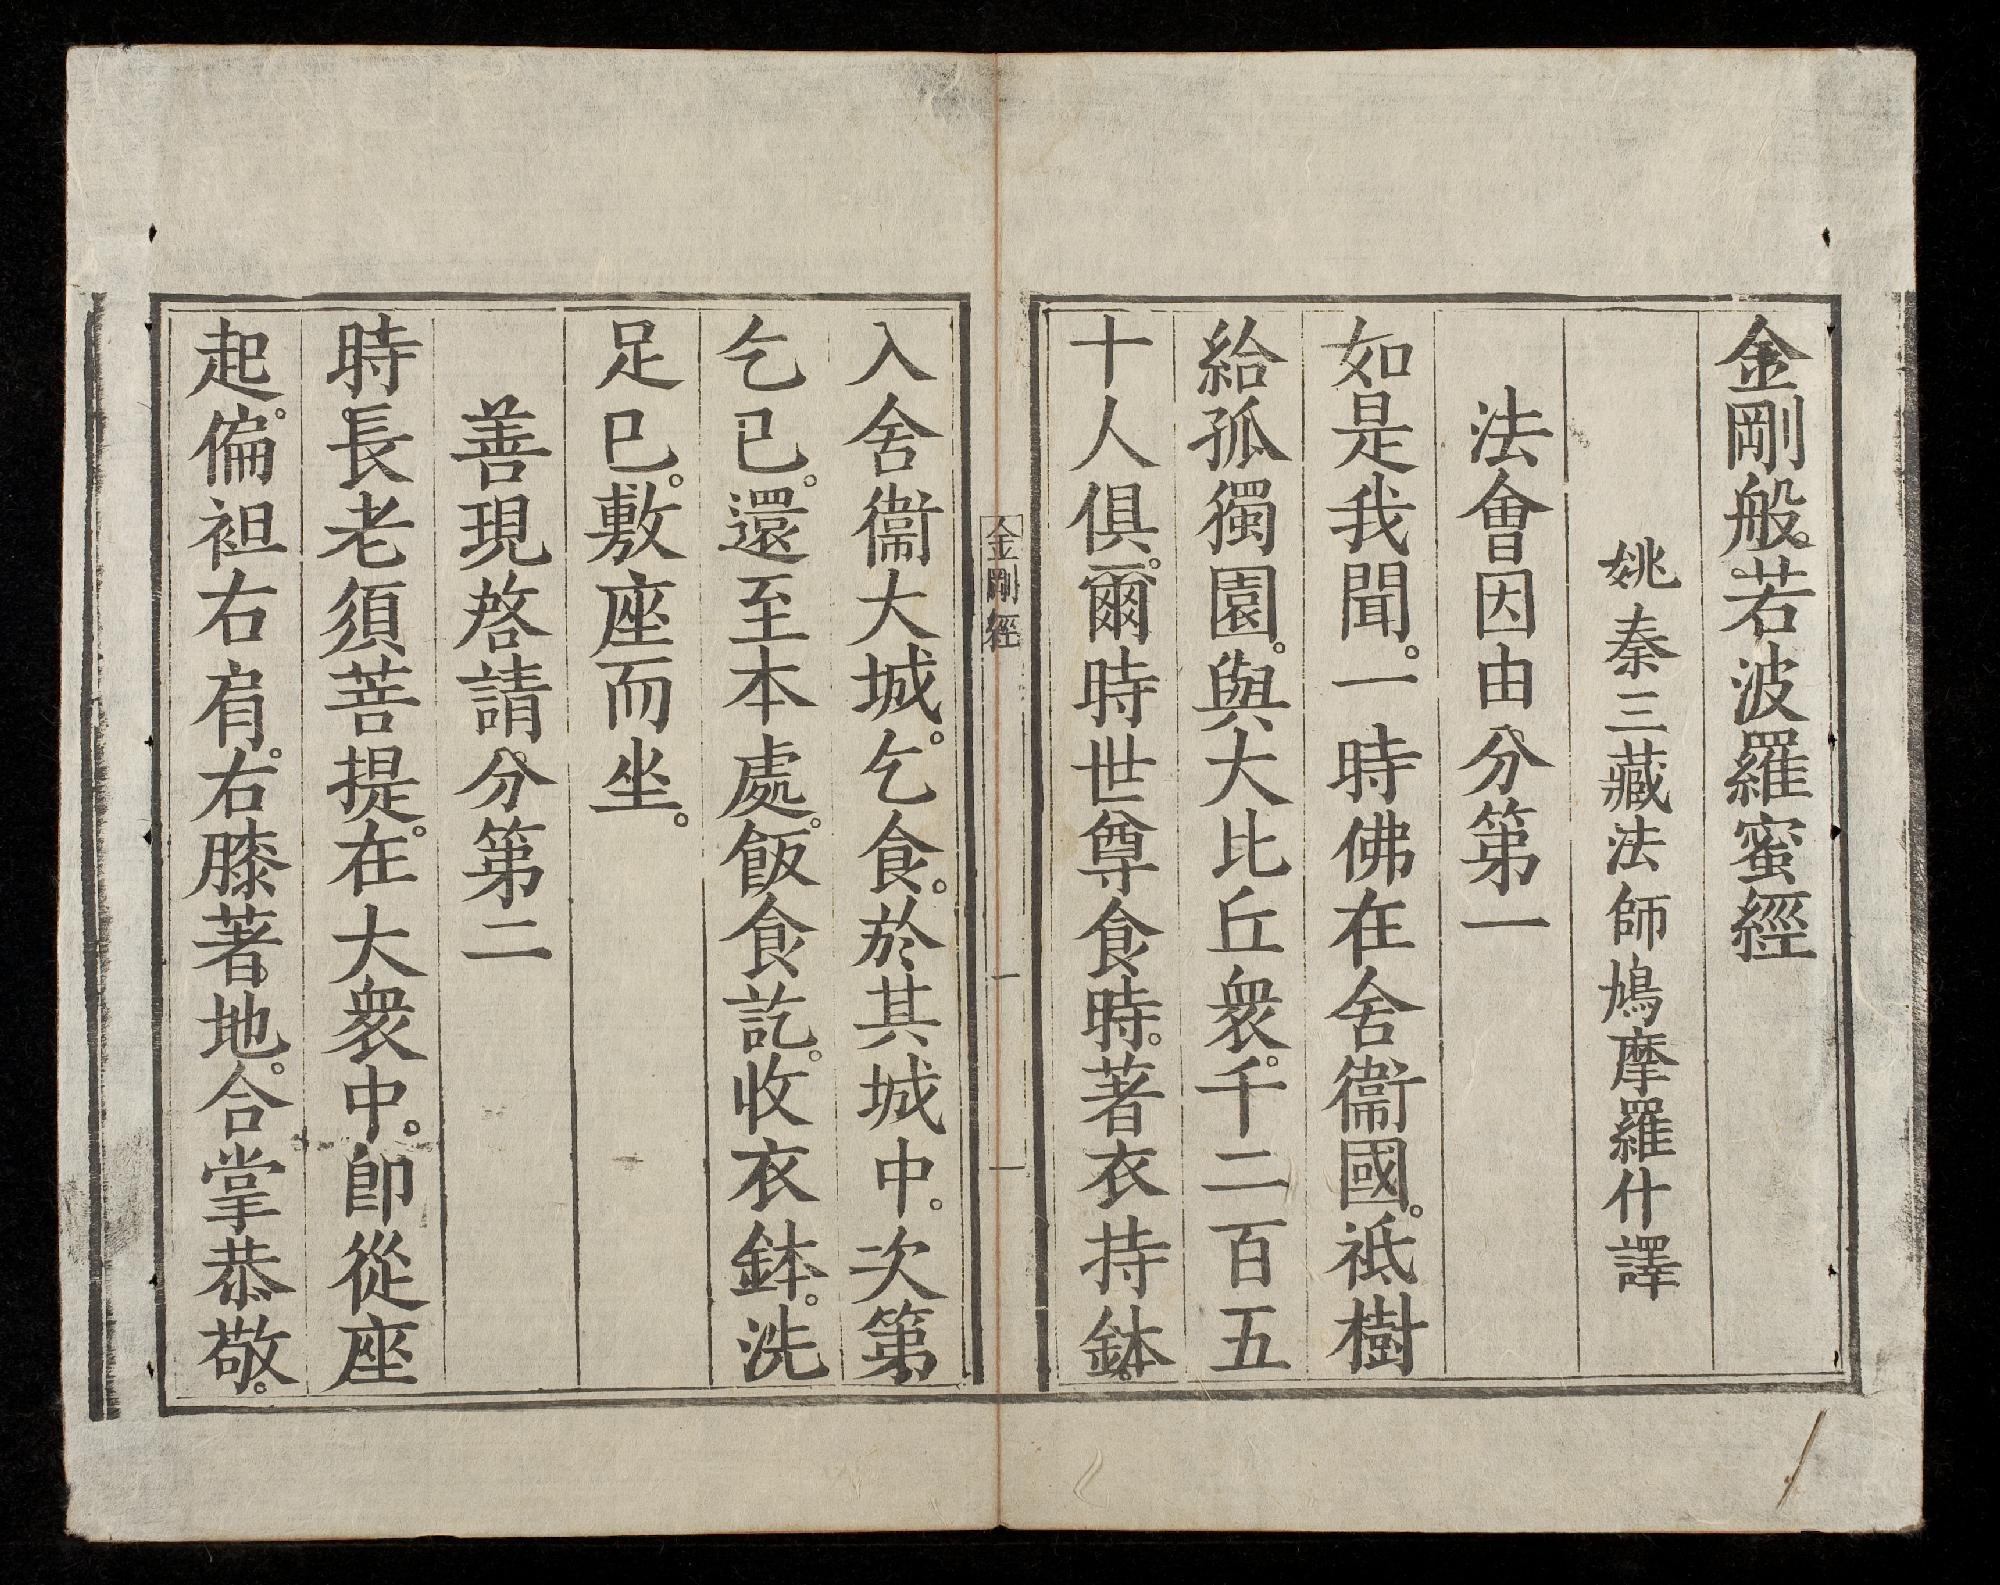 金剛般若波羅蜜經
姚秦三藏法師鳩摩羅什譯
法會因由分第一
如是我聞。一時佛在舍衞國。祗樹
給孤獨園。與大比丘衆。千二百五
十人俱。爾時世尊食時。著衣持鉢。
金剛經
一
入舍衞大城。乞食。於其城中。次第
乞已。還至本處。飯食訖。收衣鉢。洗
足已。敷座而坐。
善現啓請分第二
時長老須菩提。在大衆中。卽從座
起。偏袒右肩。右膝著地。合掌恭敬。